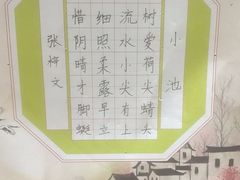 小池
惜细流树
阴照水爱
晴柔小荷
才露尖尖
脚早有蜻
蜓立上头
张梓文